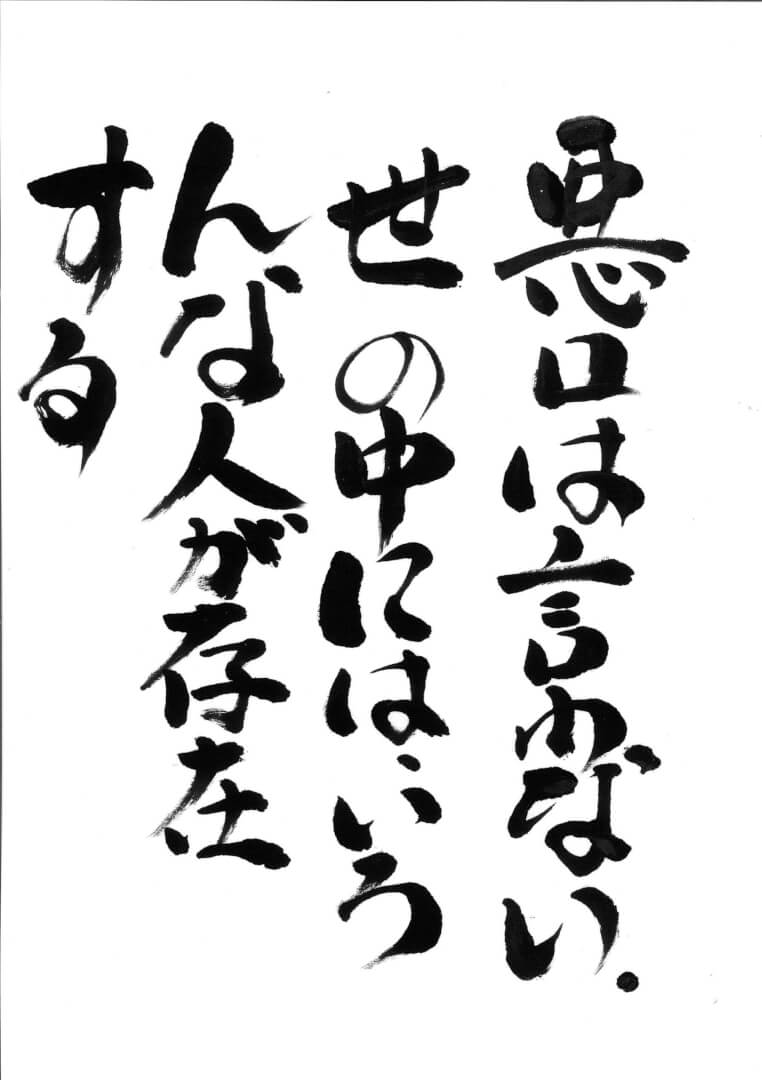 悪口は言わない.
世の中には、いろ
んな人が存在
する